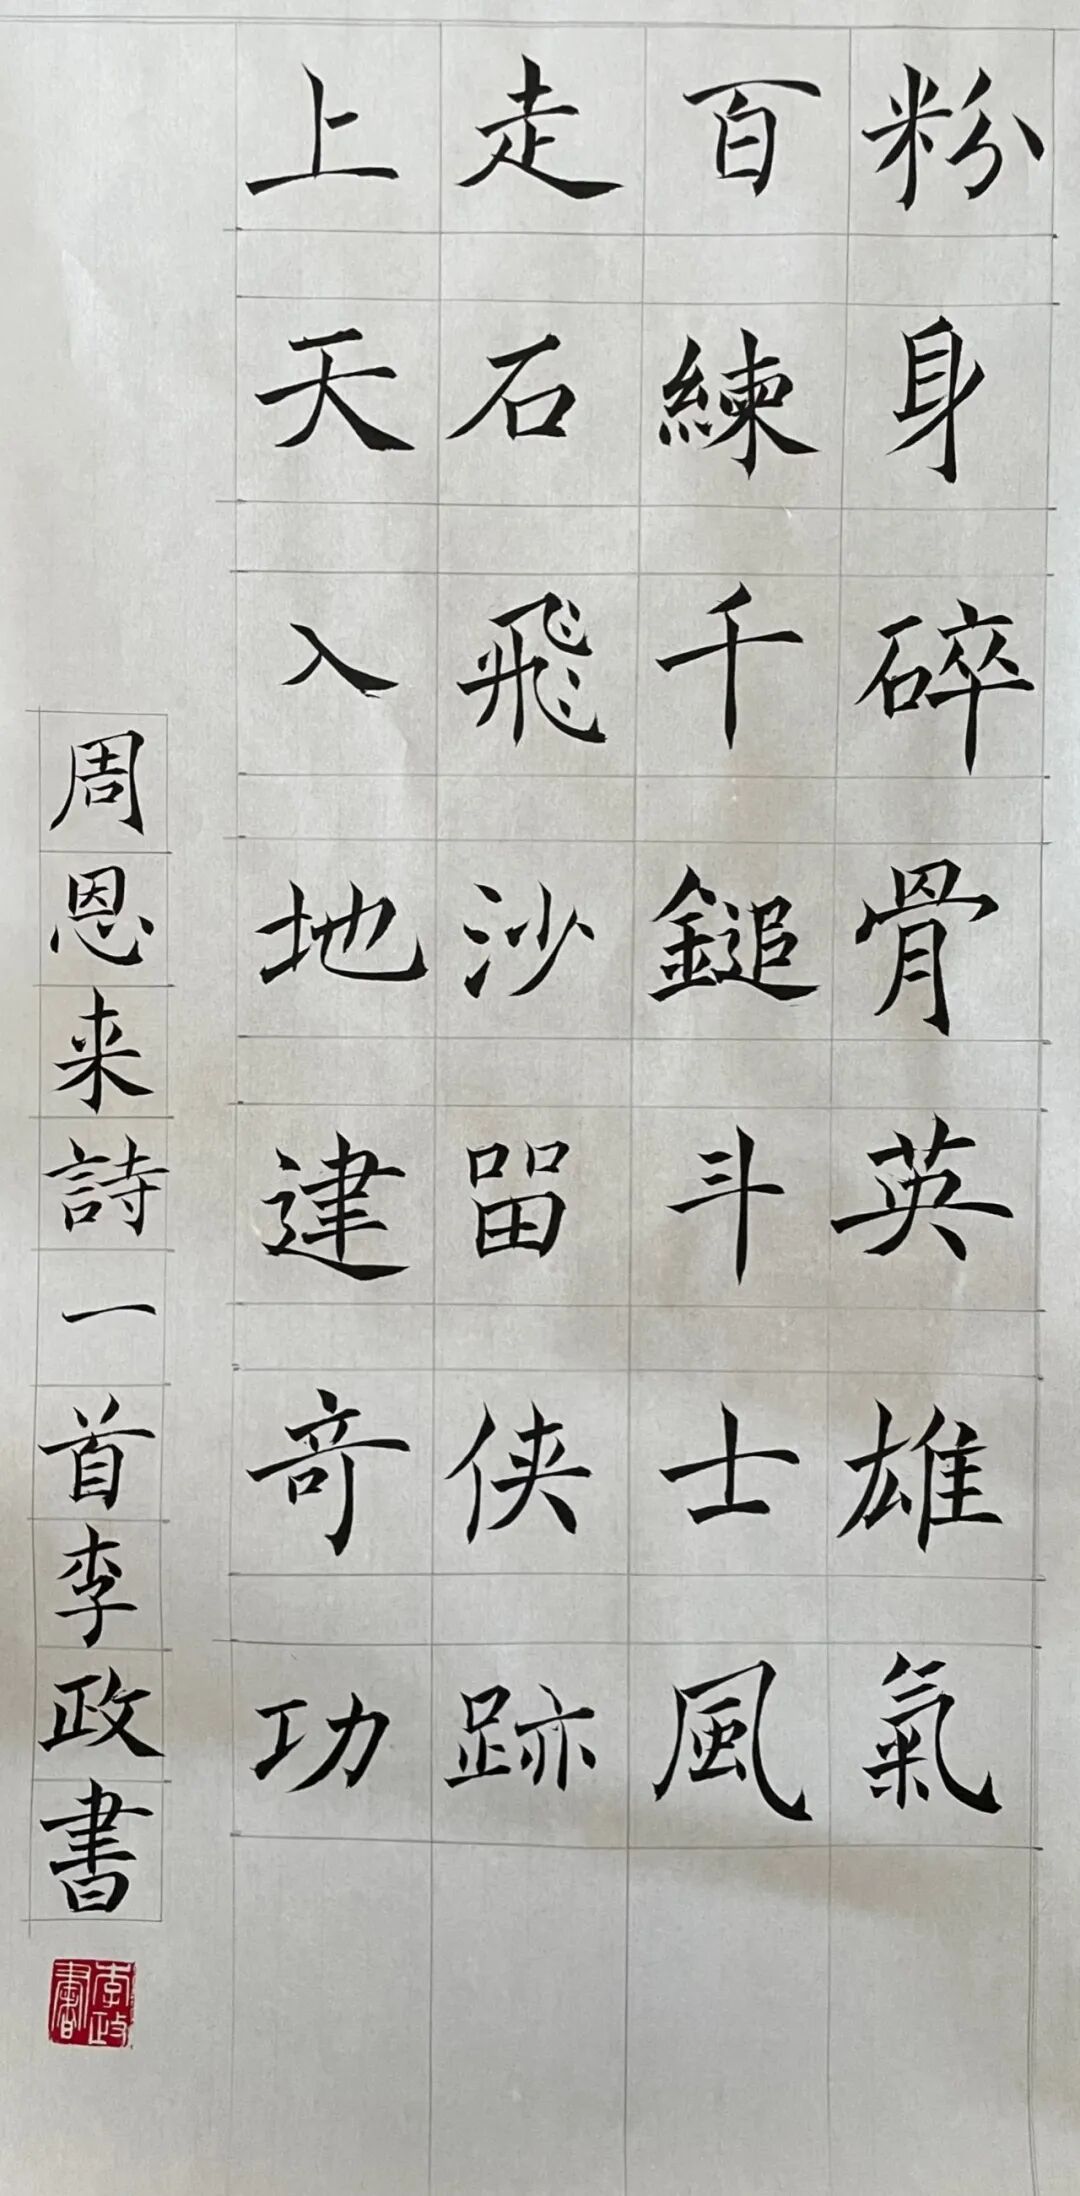 粉身碎骨英雄氣
百練千鎚斗士風
走石飛沙留侠跡
上天入地建奇功
周恩来詩一首李政書
李政書